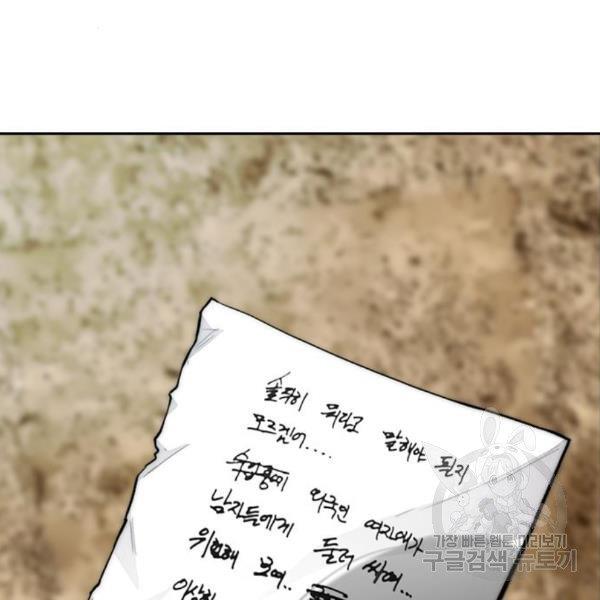 솔직히 뭐라고 말해야 된지
모르겠어....
외국인 여자애가
남자들에게 둘러 싸여...
위험해 보여..
이상하
가장 빠른 웹툰 미리보기
구글검색 뉴토끼